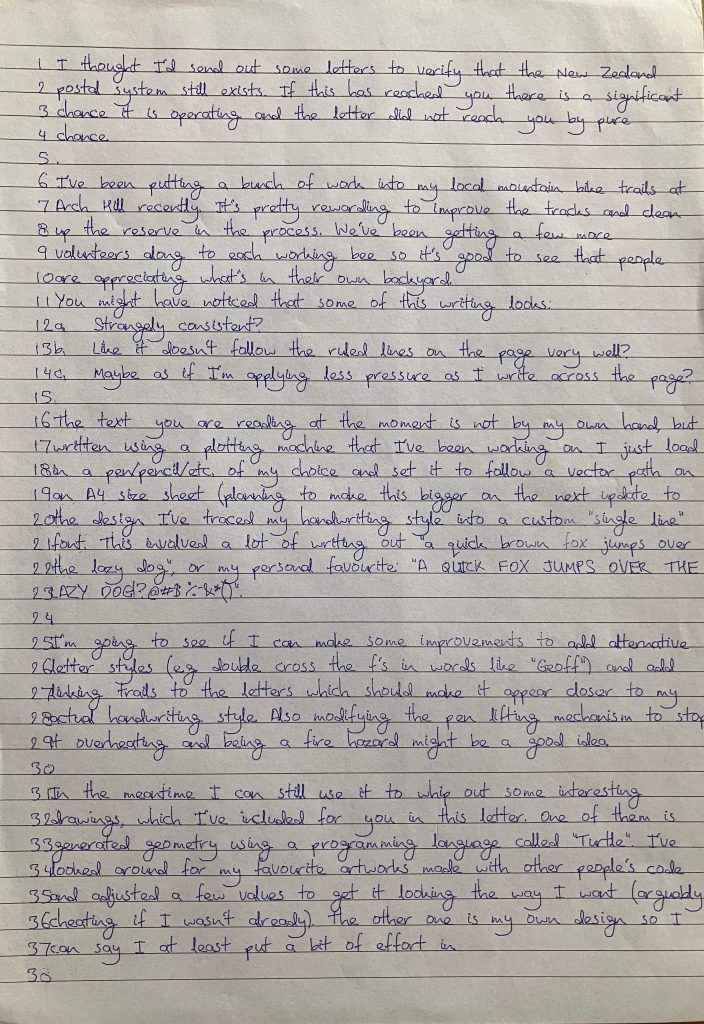 1 I thought I'd send out some letters to verify that the New Zealand
2 postal system still exists. If this has reached you there is a significant
3 chance it is operating and the letter did not reach you by pure
4 chance.
5.
6 I've been putting a bunch of work into my local mountain bike trails at
7 Arch Hill recently. It's pretty rewarding to improve the tracks and clean
8 up the reserve in the process. We've been getting a few more
9 volunteers along to each working bee so it's good to see that people
10 are appreciating what's in their own backyard.
11 You might have noticed that some of this writing looks:
12 a. Strangely consistent?
13 b. Like it doesn't follow the ruled lines on the page very well?
14 c. Maybe as if I'm applying less pressure as I write across the page?
15.
16 The text you are reading at the moment is not by my own hand, but
17 written using a plotting machine that I've been working on. I just load
18 in a pen/pencil/etc. of my choice and set it to follow a vector path on
19 an A4 size sheet (planning to make this bigger on the next update to
20 the design. I've traced my handwriting style into a custom "single line"
21 font. This involved a lot of writing out "a quick brown fox jumps over
22 the lazy dog", or my personal favourite: "A QUICK FOX JUMPS OVER THE
23 LAZY DOG!?@#$%^&*()".
24
25 I'm going to see if I can make some improvements to add alternative
26 letter styles (e.g double cross the f's in words like "Geoff") and add
27 linking trails to the letters which should make it appear closer to my
28 actual handwriting style. Also modifying the pen lifting mechanism to stop
29 it overheating and being a fire hazard might be a good idea.
30
31 In the meantime I can still use it to whip out some interesting
32 drawings, which I've included for you in this letter. One of them is
33 generated geometry using a programming language called "Turtle". I've
34 looked around for my favourite artworks made with other people's code
35 and adjusted a few values to get it looking the way I want (arguably
36 cheating if I wasn't already). The other one is my own design so I
37 can say I at least put a bit of effort in
38